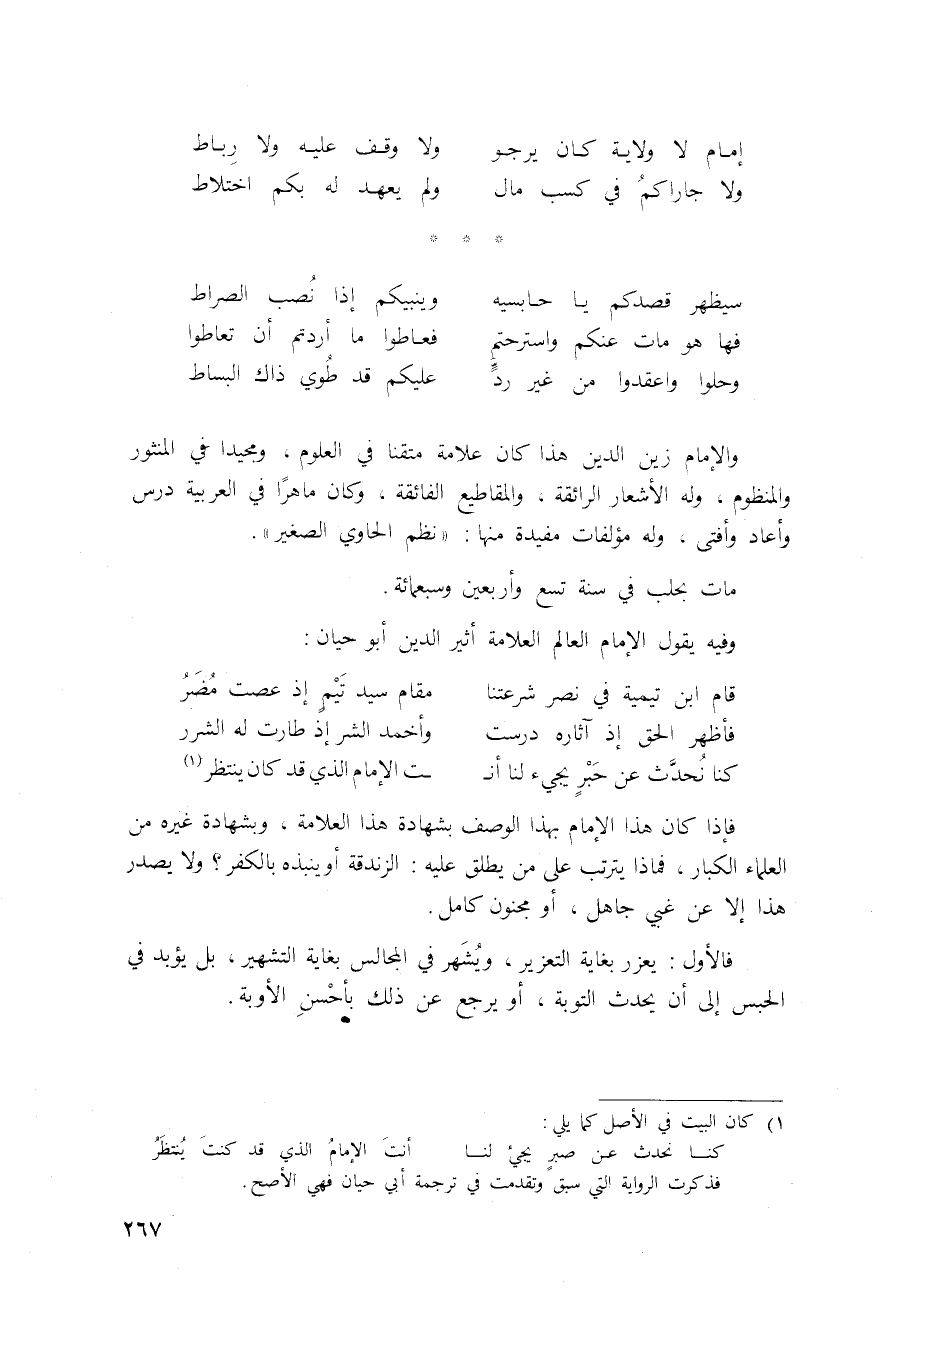 إمام لا ولاية كان يرجو ولا وقف عليه ولا رِباط
ولا جاراكمُ في كسب مال ولم يعهد له بكم اختلاط
* * *
سيظهر قصدكم يا حابسيه وينبيكم إذا نُصب الصراط
فها هو مات عنكم واسترحتم فعاطوا ما أردتم أن تعاطوا
وحلوا واعقدوا من غير ردٍّ عليكم قد طُوي ذاك البساط
والإمام زين الدين هذا كان علامة متقنا في العلوم ، ومجيدا في المنثور
والمنظوم ، وله الأشعار الرائقة ، والمقاطيع الفائقة ، وكان ماهرًا في العربية درس
وأعاد وأفتى ، وله مؤلفات مفيدة منها : « نظم الحاوي الصغير » .
مات بحلب في سنة تسع وأربعين وسبعمائة .
وفيه يقول الإمام العالم العلامة أثير الدين أبو حيان :
قام ابن تيمية في نصر شرعتنا مقام سيد تَيْمٍ إذ عصت مُضَرُ
فأظهر الحق إذ آثاره درست وأخمد الشر إذ طارت له الشرر
كنا نُحدَّث عن حَبْرٍ يجيء لنا أنـ ـت الإمام الذي قد كان ينتظر (١)
فإذا كان هذا الإمام بهذا الوصف بشهادة هذا العلامة ، وبشهادة غيره من
العلماء الكبار ، فماذا يترتب على من يطلق عليه : الزندقة أو ينبذه بالكفر ؟ ولا يصدر
هذا إلا عن غبي جاهل ، أو مجنون كامل .
فالأول : يعزر بغاية التعزير ، ويُشَهر في المجالس بغاية التشهير ، بل يؤبد في
الحبس إلى أن يحدث التوبة ، أو يرجع عن ذلك بأحْسنِ الأوبة .
١) كان البيت في الأصل كما يلي :
كنا نحدث عن صبرٍ يجيُ لنا أنتَ الإمامُ الذي قد كنتَ يُنتظَرُ
فذكرت الرواية التي سبق وتقدمت في ترجمة أبي حيان فهي الأصح .
٢٦٧